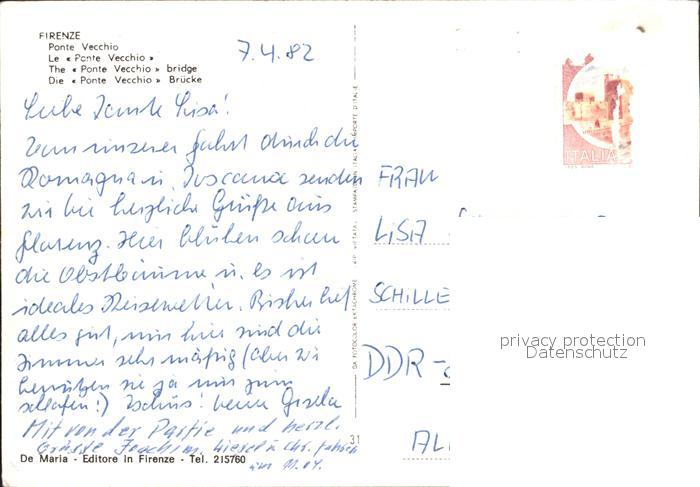 FIRENZE
Ponte Vecchio
Le « Ponte Vecchio »
The « Ponte Vecchio » bridge
Die « Ponte Vecchio » Brücke
7.4.82
Liebe Tante Lisa!
Von unserer Fahrt durch die
Romagna u. Toscana senden
wir die herzliche Grüße aus
Florenz. Hier blühen schon
die Obstbäume u. es ist
ideales Reisewetter. Bisher lief
alles gut, nur hier sind die
Zimmer sehr mäßig (aber wir
benützen sie ja nur zum
schlafen!) Tschüs! Deine Gisela
Mit von der Partie und herzl.
Grüsse Joachim,
De Maria - Editore in Firenze - Tel. 215760
31
ITALIA
FRAU
LISA
SCHILLE
DDR-
AL
privacy protection
Datenschutz